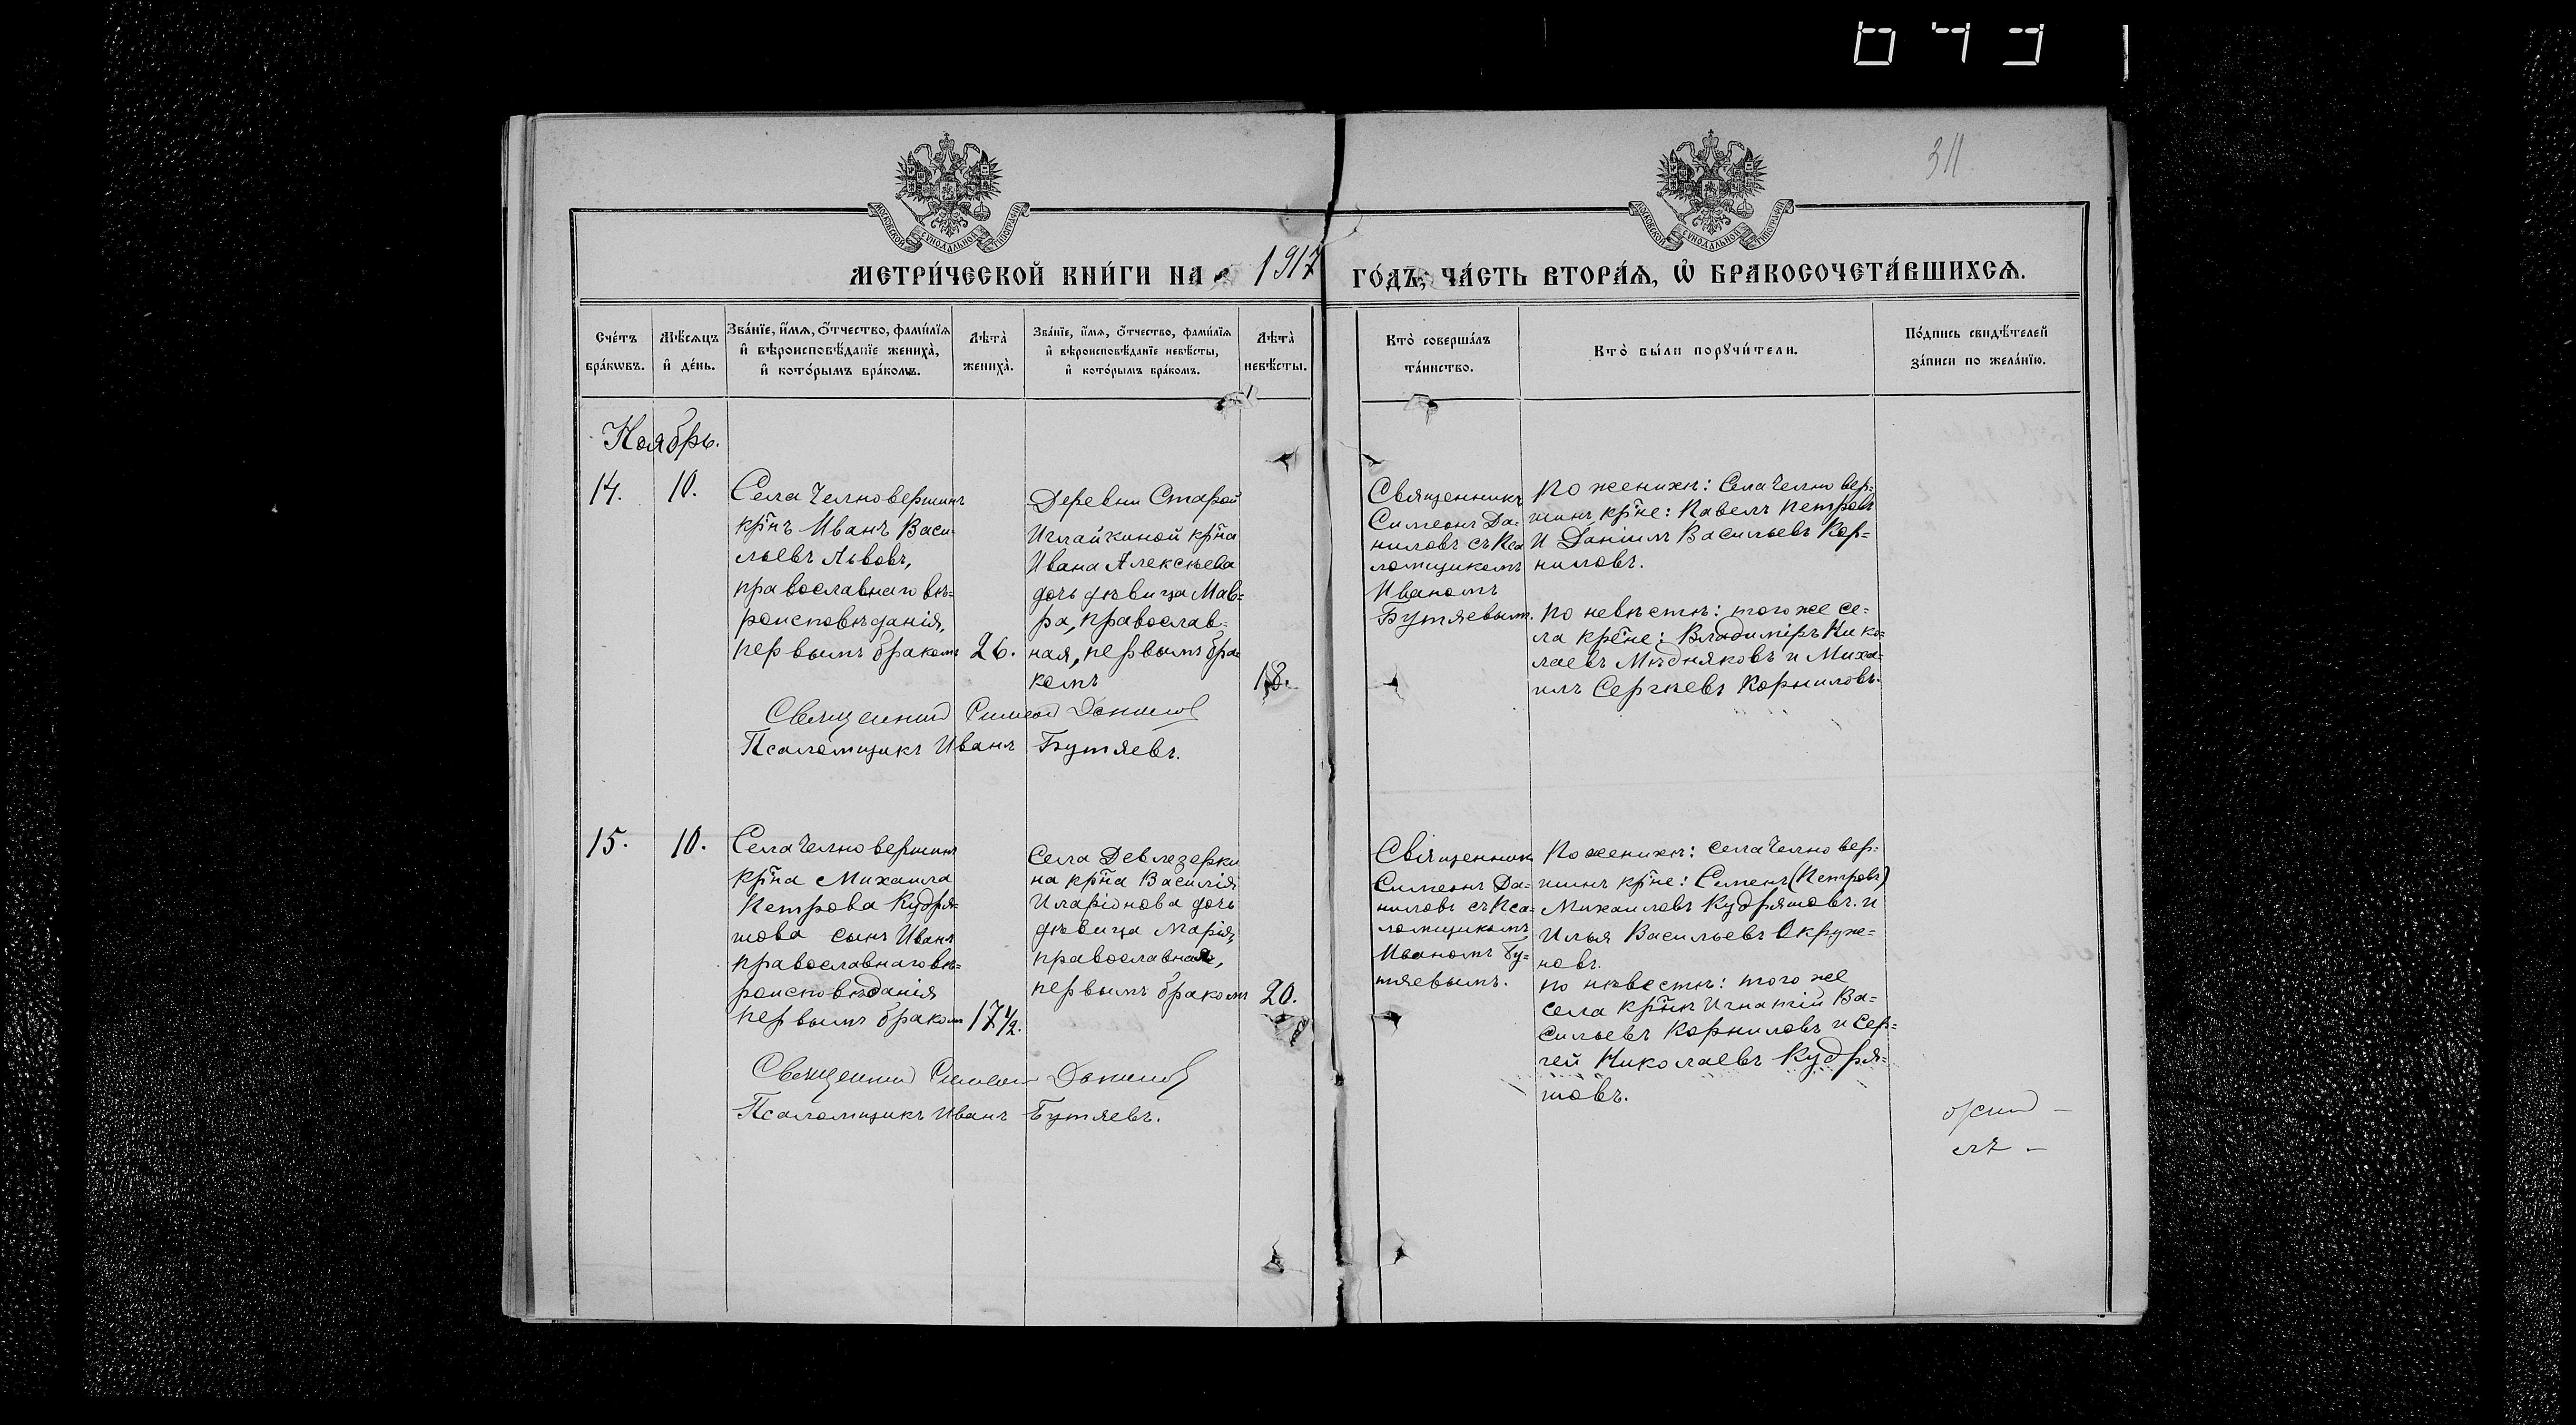 311
МОСКОВСКОЙ СѴНОДАЛЬНОЙ ТИПОГРАФІИ
МОСКОВСКОЙ СѴНОДАЛЬНОЙ ТИПОГРАФІИ
МЕТРИ́ЧЕСКОЙ КНИ́ГИ НА 1917 ГО́ДЪ, ЧА́СТЬ ВТОРА́Ѧ, Ѽ БРАКОСОЧЕТА́ВШИХСѦ.
Сче́тъ
бра́кѡвъ.
Мѣ́сѧцъ
и҆ де́нь.
Зва́нїе, и҆́мѧ, ѻ҆́тчество, фами́лїѧ
и҆ вѣроисповѣ́данїе жениха̀,
и҆ кото́рымъ бра́комъ.
Лѣта̀
жениха̀.
Зва́нїе, и҆́мѧ, ѻ҆́тчество, фами́лїѧ
и҆ вѣроисповѣ́данїе невѣ́сты,
и҆ кото́рымъ бра́комъ.
Лѣта̀
невѣ́сты.
Кто̀ соверша́лъ
та́инство.
Кто̀ бы́ли порꙋчи́тели.
По́дпись свидѣ́телей
за́писи по жела́нїю.
Ноябрь.
14.
10.
Села Челновершинъ
кр̃нъ Иванъ Васи-
льевъ Львовъ,
православнаго вѣ=
роисповѣданія,
первымъ бракомъ
26.
Деревни Старой
Иглайкиной кр̃на
Ивана Алексѣева
дочь дѣвица Мав=
ра, православ=
ная, первымъ бра=
комъ
18.
Священникъ
Симеонъ Да-
ниловъ съ Пса
ломщикомъ
Иваномъ
Бутяевымъ.
По женихѣ: Села Челновер-
шинъ кр̃не: Павелъ Петровъ
и Даніилъ Васильевъ Кор=
ниловъ.
По невѣстѣ: того же се=
ла кр̃не: Владиміръ Нико=
лаевъ Мѣдняковъ и Миха=
илъ Сергѣевъ Корниловъ.
Священникъ Симеонъ Даниловъ
Псаломщикъ Иванъ Бутяевъ.
15.
10.
Села Челновершинъ
кр̃на Михаила
Петрова Кудря=
шова сынъ Иванъ
православнаго вѣ=
роисповѣданія
первымъ бракомъ
17½.
Села Девлезерки
на кр̃на Василія
Иларіонова дочь
дѣвица Марія,
православная,
первымъ бракомъ
20.
Священникъ
Симеонъ Да=
ниловъ съ Пса=
ломщикомъ
Иваномъ Бу=
тяевымъ.
По женихѣ: села Челновер=
шинъ кр̃не: Семенъ (Петровъ)
Михаиловъ Кудряшовъ. и
Илья Васильевъ Окруж=
новъ.
По невѣстѣ: того же
села кр̃нъ Игнатій Ва=
сильевъ Корниловъ и Сер=
гей Николаевъ Кудря=
шовъ.
Священникъ Симеонъ Даниловъ
Псаломщикъ Иванъ Бутяевъ.